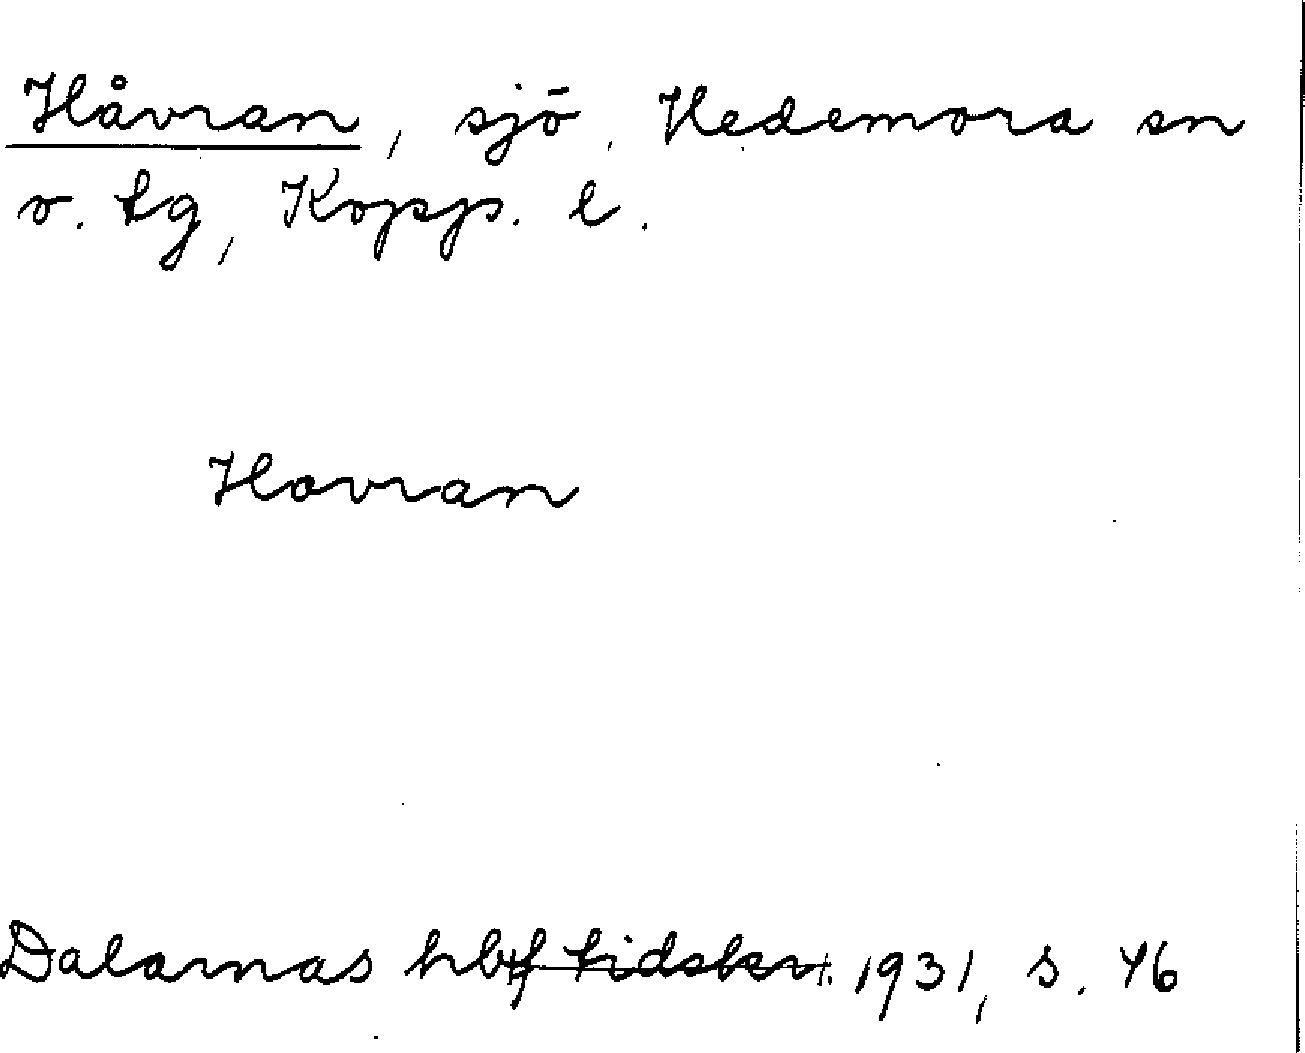 Håvran, sjö, Hedemora sn
o. tg, Kopp. l.
Hovran
Dalarnas hbf tidskr. 1931, s. 46